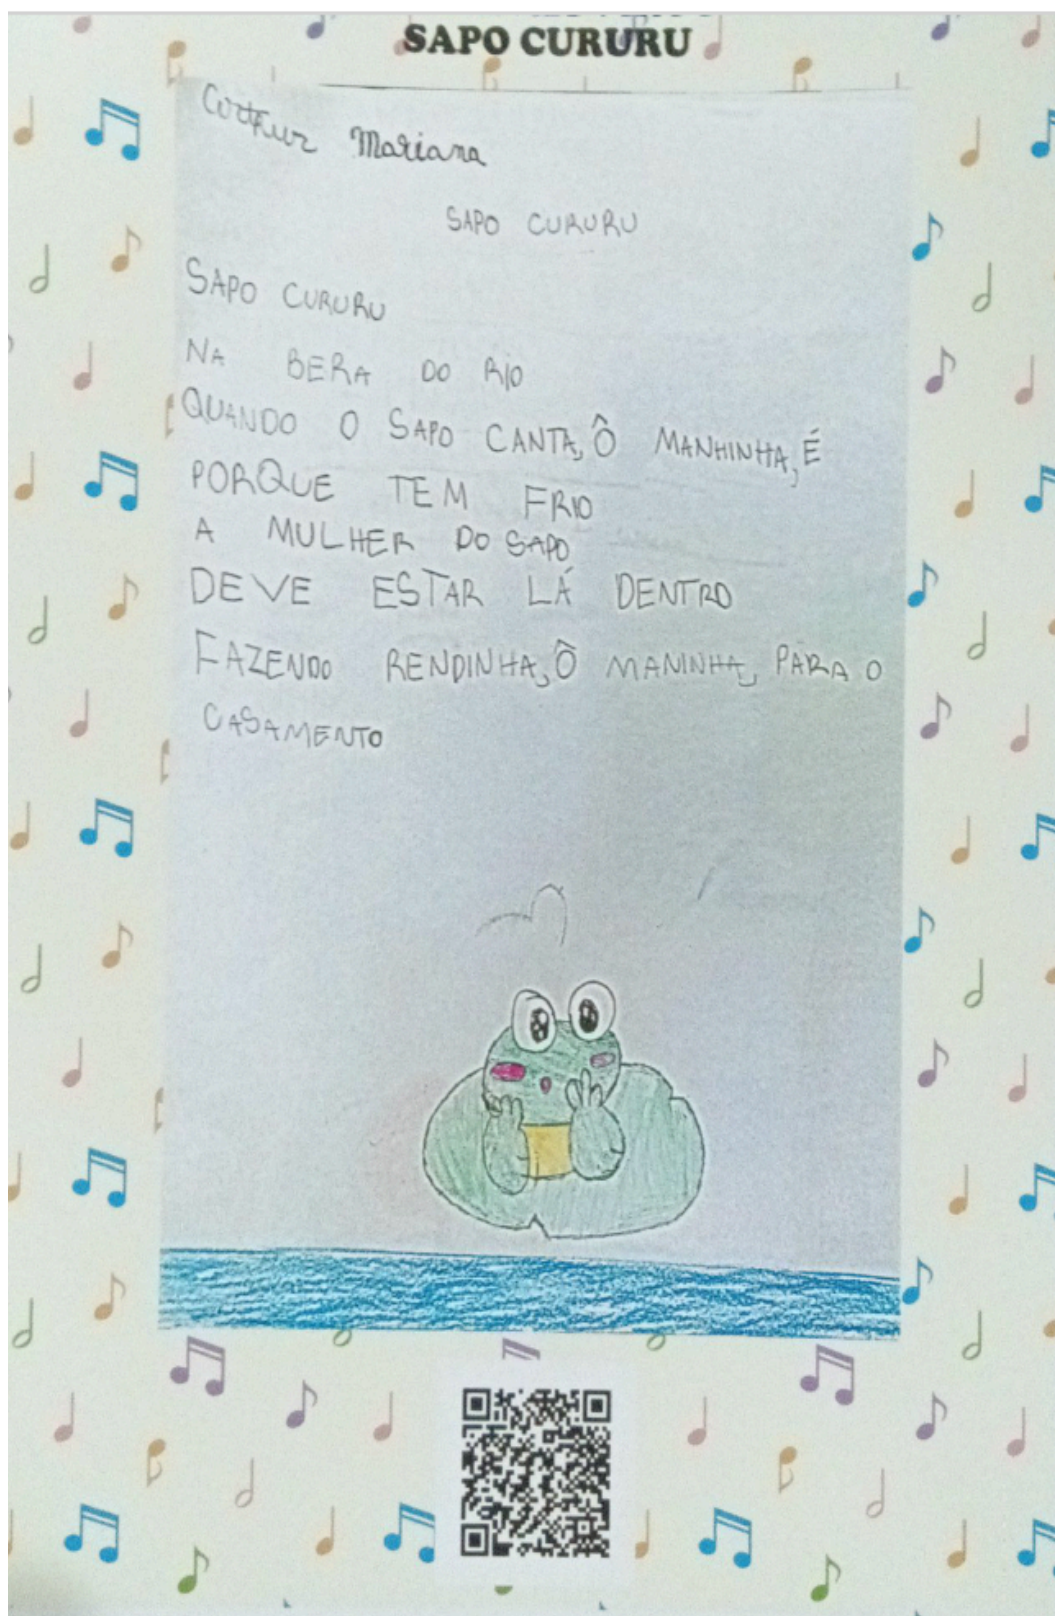 SAPO CURURU
Arthur Mariana
SAPO CURURU
SAPO CURURU
NA BERA DO RIO
QUANDO O SAPO CANTA, Ô MANHINHA, É
PORQUE TEM FRIO
A MULHER DO SAPO
DEVE ESTAR LÁ DENTRO
FAZENDO RENDINHA, Ô MANINHA, PARA O
CASAMENTO